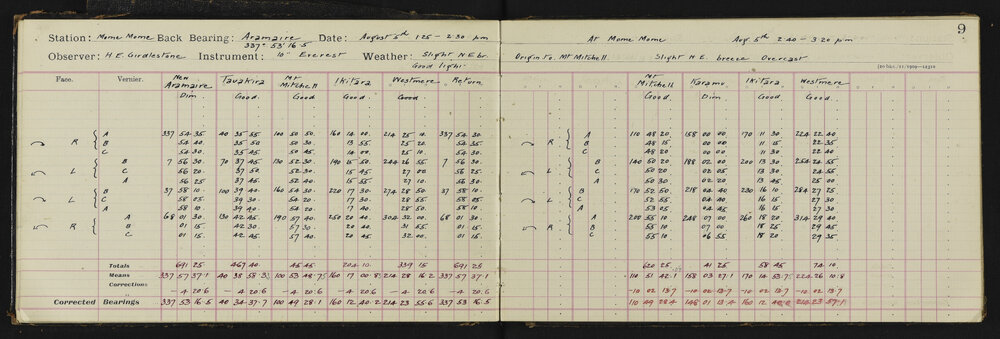 9
Station: Mome Mome Back Bearing: Aramaire Date: August 5th 1·25 - 2·30 pm
337° 53' 16·5
At Mome Mome Aug. 5th 2·40 - 3·20 pm
Observer: H. E. Girdlestone Instrument: 10" Everest Weather: Slight N.E br
Good light
Origin to Mt Mitchell Slight N.E. breeze Overcast
Face. Vernier. New Aramaire Tauakira Mt Mitchell Ikitara Westmere Return
Mt Mitchell Karamu Ikitara Westmere
Dim Good Good Good Good
Good Dim Good Good
R A 337 54 35 40 35 55 100 50 50 160 14 00 214 25 10 337 54 30
B 54 40 35 50 50 30 13 55 25 20 54 35
C 54 30 35 45 50 45 14 00 25 10 54 30
L B 7 56 30 70 37 45 130 52 30 190 15 50 244 26 55 7 56 30
C 56 20 37 50 52 30 15 45 27 00 56 25
A 56 25 37 45 52 40 15 50 27 10 56 30
L B 37 58 10 100 39 40 160 54 30 220 17 30 274 28 50 37 58 10
C 58 05 39 30 54 20 17 30 28 55 58 05
A 58 10 39 40 54 20 17 40 28 50 58 10
R A 68 01 30 130 42 45 190 57 40 250 20 40 304 32 00 68 01 30
B 01 15 42 30 57 30 20 40 31 55 01 15
C 01 15 42 45 57 40 20 45 32 00 01 15
R A 110 48 20 158 00 00 170 11 30 224 22 40
B 48 15 00 00 11 15 22 35
C 48 20 00 00 11 30 22 40
L B 140 50 20 188 02 00 200 13 30 254 24 55
C 50 20 02 05 13 30 24 55
A 50 30 02 20 13 45 25 00
L B 170 52 50 218 04 40 230 16 10 284 27 25
C 52 55 04 40 16 15 27 30
A 53 05 04 45 16 15 27 30
R A 200 55 10 248 07 00 260 18 20 314 29 40
B 55 10 07 00 18 25 29 45
C 55 10 06 55 18 20 29 35
Totals 691 25 467 40 45 45 204 10 339 15 691 25
620 25 41 25 58 45 74 10
Means 337 57 37·1 40 38 58·3 100 53 48·7 160 17 00·8 214 28 16·2 337 57 37·1
110 51 42·1 158 03 27·1 170 14 53·7 224 26 10·8
Corrections
-4 20·6 -4 20·6 -4 20·6 -4 20·6 -4 20·6 -4 20·6
-10 02 13·7 -10 02 13·7 -10 02 13·7 -10 02 13·7
Corrected Bearings 337 53 16·5 40 34 37·7 100 49 28·1 160 12 40·2 214 23 55·6 337 53 16·5
110 49 28·4 148 01 13·4 160 12 40·0 214 23 57·1